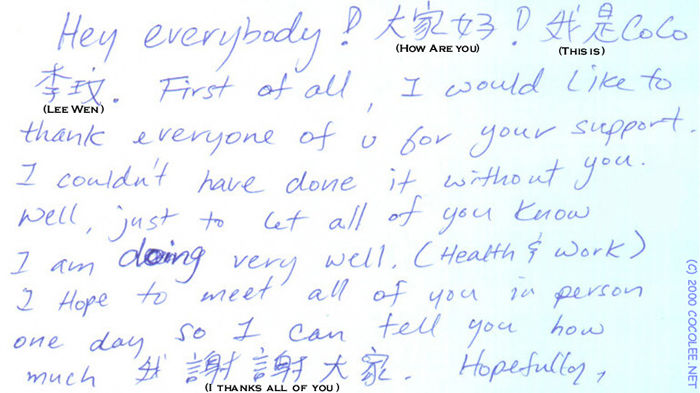 Hey everybody! 大家好! 我是CoCo
(HOW ARE YOU) (THIS IS)
李玟. First of all, I would like to
(LEE WEN)
thank everyone of u for your support.
I couldn't have done it without you.
Well, just to let all of you know
I am doing very well. (Health & Work)
I Hope to meet all of you in person
one day so I can tell you how
much 我謝謝大家. Hopefully,
(I THANKS ALL OF YOU)
(C) 2000 COCOLEE.NET